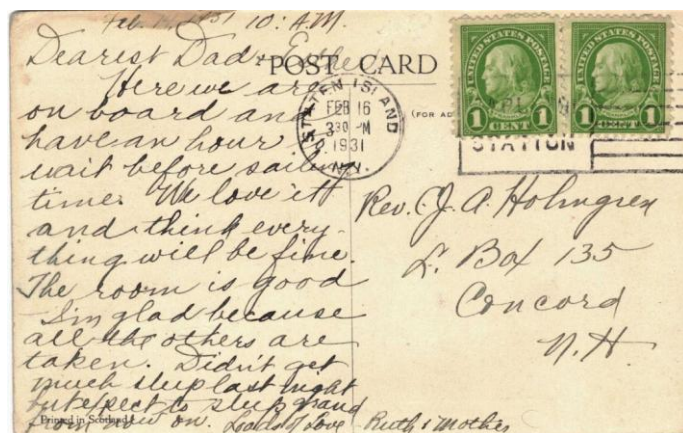 Feb. 14, 1931 10: A.M.
Dearest Dad &
Here we are
on board and
have an hour
wait before sailing
time. We love it
and think every-
thing will be fine.
The room is good
I'm glad because
all the others are
taken. Didn't get
much sleep last night
but expect to sleep grand
from now on. Loads of Love - Ruth & Mother
Printed in Scotland
POST CARD
(FOR AD
STATEN ISLAND
FEB 16
3 30 PM
1931
N.Y.
UNITED STATES POSTAGE
1 CENT 1
UNITED STATES POSTAGE
1 CENT 1
STATION
Rev. J. A. Holmgren
L. Box 135
Concord
N. H.